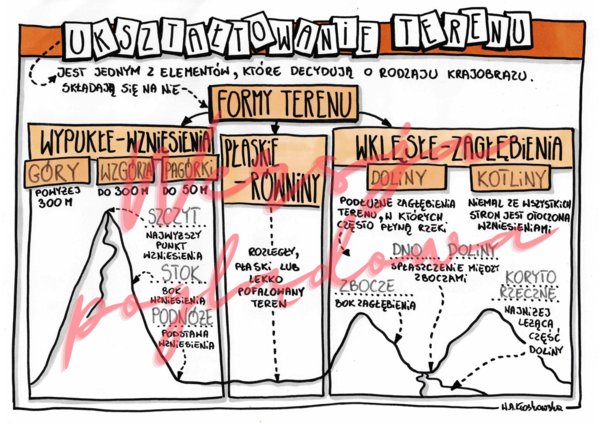 UKSZTAŁTOWANIE TERENU
JEST JEDNYM Z ELEMENTÓW, KTÓRE DECYDUJĄ O RODZAJU KRAJOBRAZU.
SKŁADAJĄ SIĘ NA NIE
FORMY TERENU
WYPUKŁE-WZNIESIENIA
GÓRY
WZGÓRZA
PAGÓRKI
POWYŻEJ
300 M
DO 300 M
DO 50 M
SZCZYT
NAJWYŻSZY
PUNKT
WZNIESIENIA
STOK
BOK
WZNIESIENIA
PODNÓŻE
PODSTAWA
WZNIESIENIA
PŁASKIE
-RÓWNINY
ROZLEGŁY,
PŁASKI LUB
LEKKO
POFALOWANY
TEREN
WKLĘSŁE-ZAGŁĘBIENIA
DOLINY
KOTLINY
PODŁUŻNE ZAGŁĘBIENIA
TERENU, W KTÓRYCH
CZĘSTO PŁYNĄ RZEKI
NIEMAL ZE WSZYSTKICH
STRON JEST OTOCZONA
WZNIESIENIAMI
DNO DOLINY
SPŁASZCZENIE MIĘDZY
ZBOCZAMI
ZBOCZE
BOK ZAGŁĘBIENIA
KORYTO
RZECZNE
NAJNIŻEJ
LEŻĄCA
CZĘŚĆ
DOLINY
Wersja
poglądowa